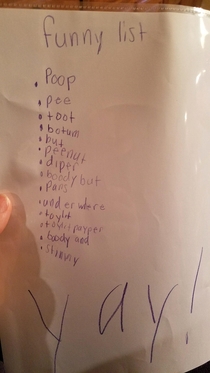 funny list
• Poop
• pee
• toot
• botum
• but
• peenut
• diper
• boody but
• Pans
• under where
• toylit
• toylit purper
• boody and
• skinny
yay!